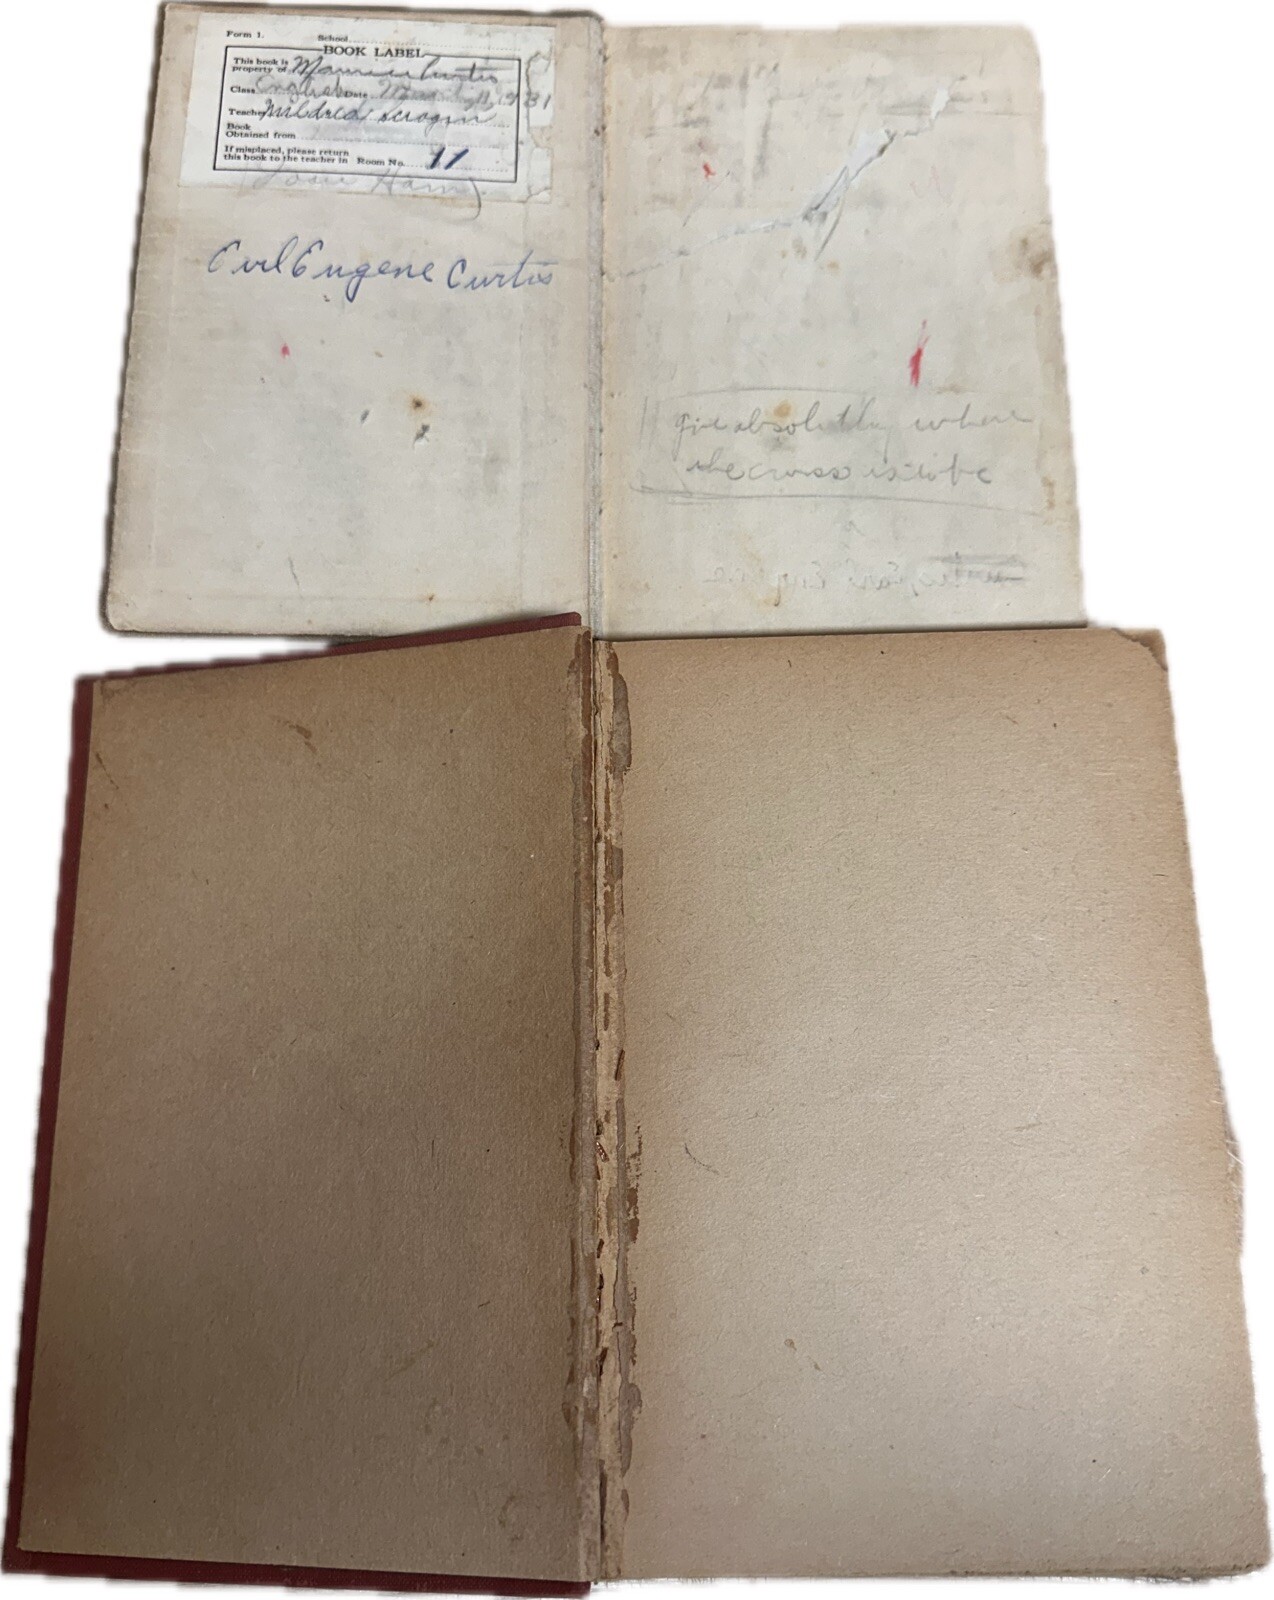 Form 1. School
BOOK LABEL
This book is
property of Maurice Curtis
Class English Date 1931
Teacher Mildred Scrogin
Book
Obtained from
If misplaced, please return
this book to the teacher in Room No. 11
Earl Eugene Curtis
give absolutly where
the cross is to be
Earl Eugene